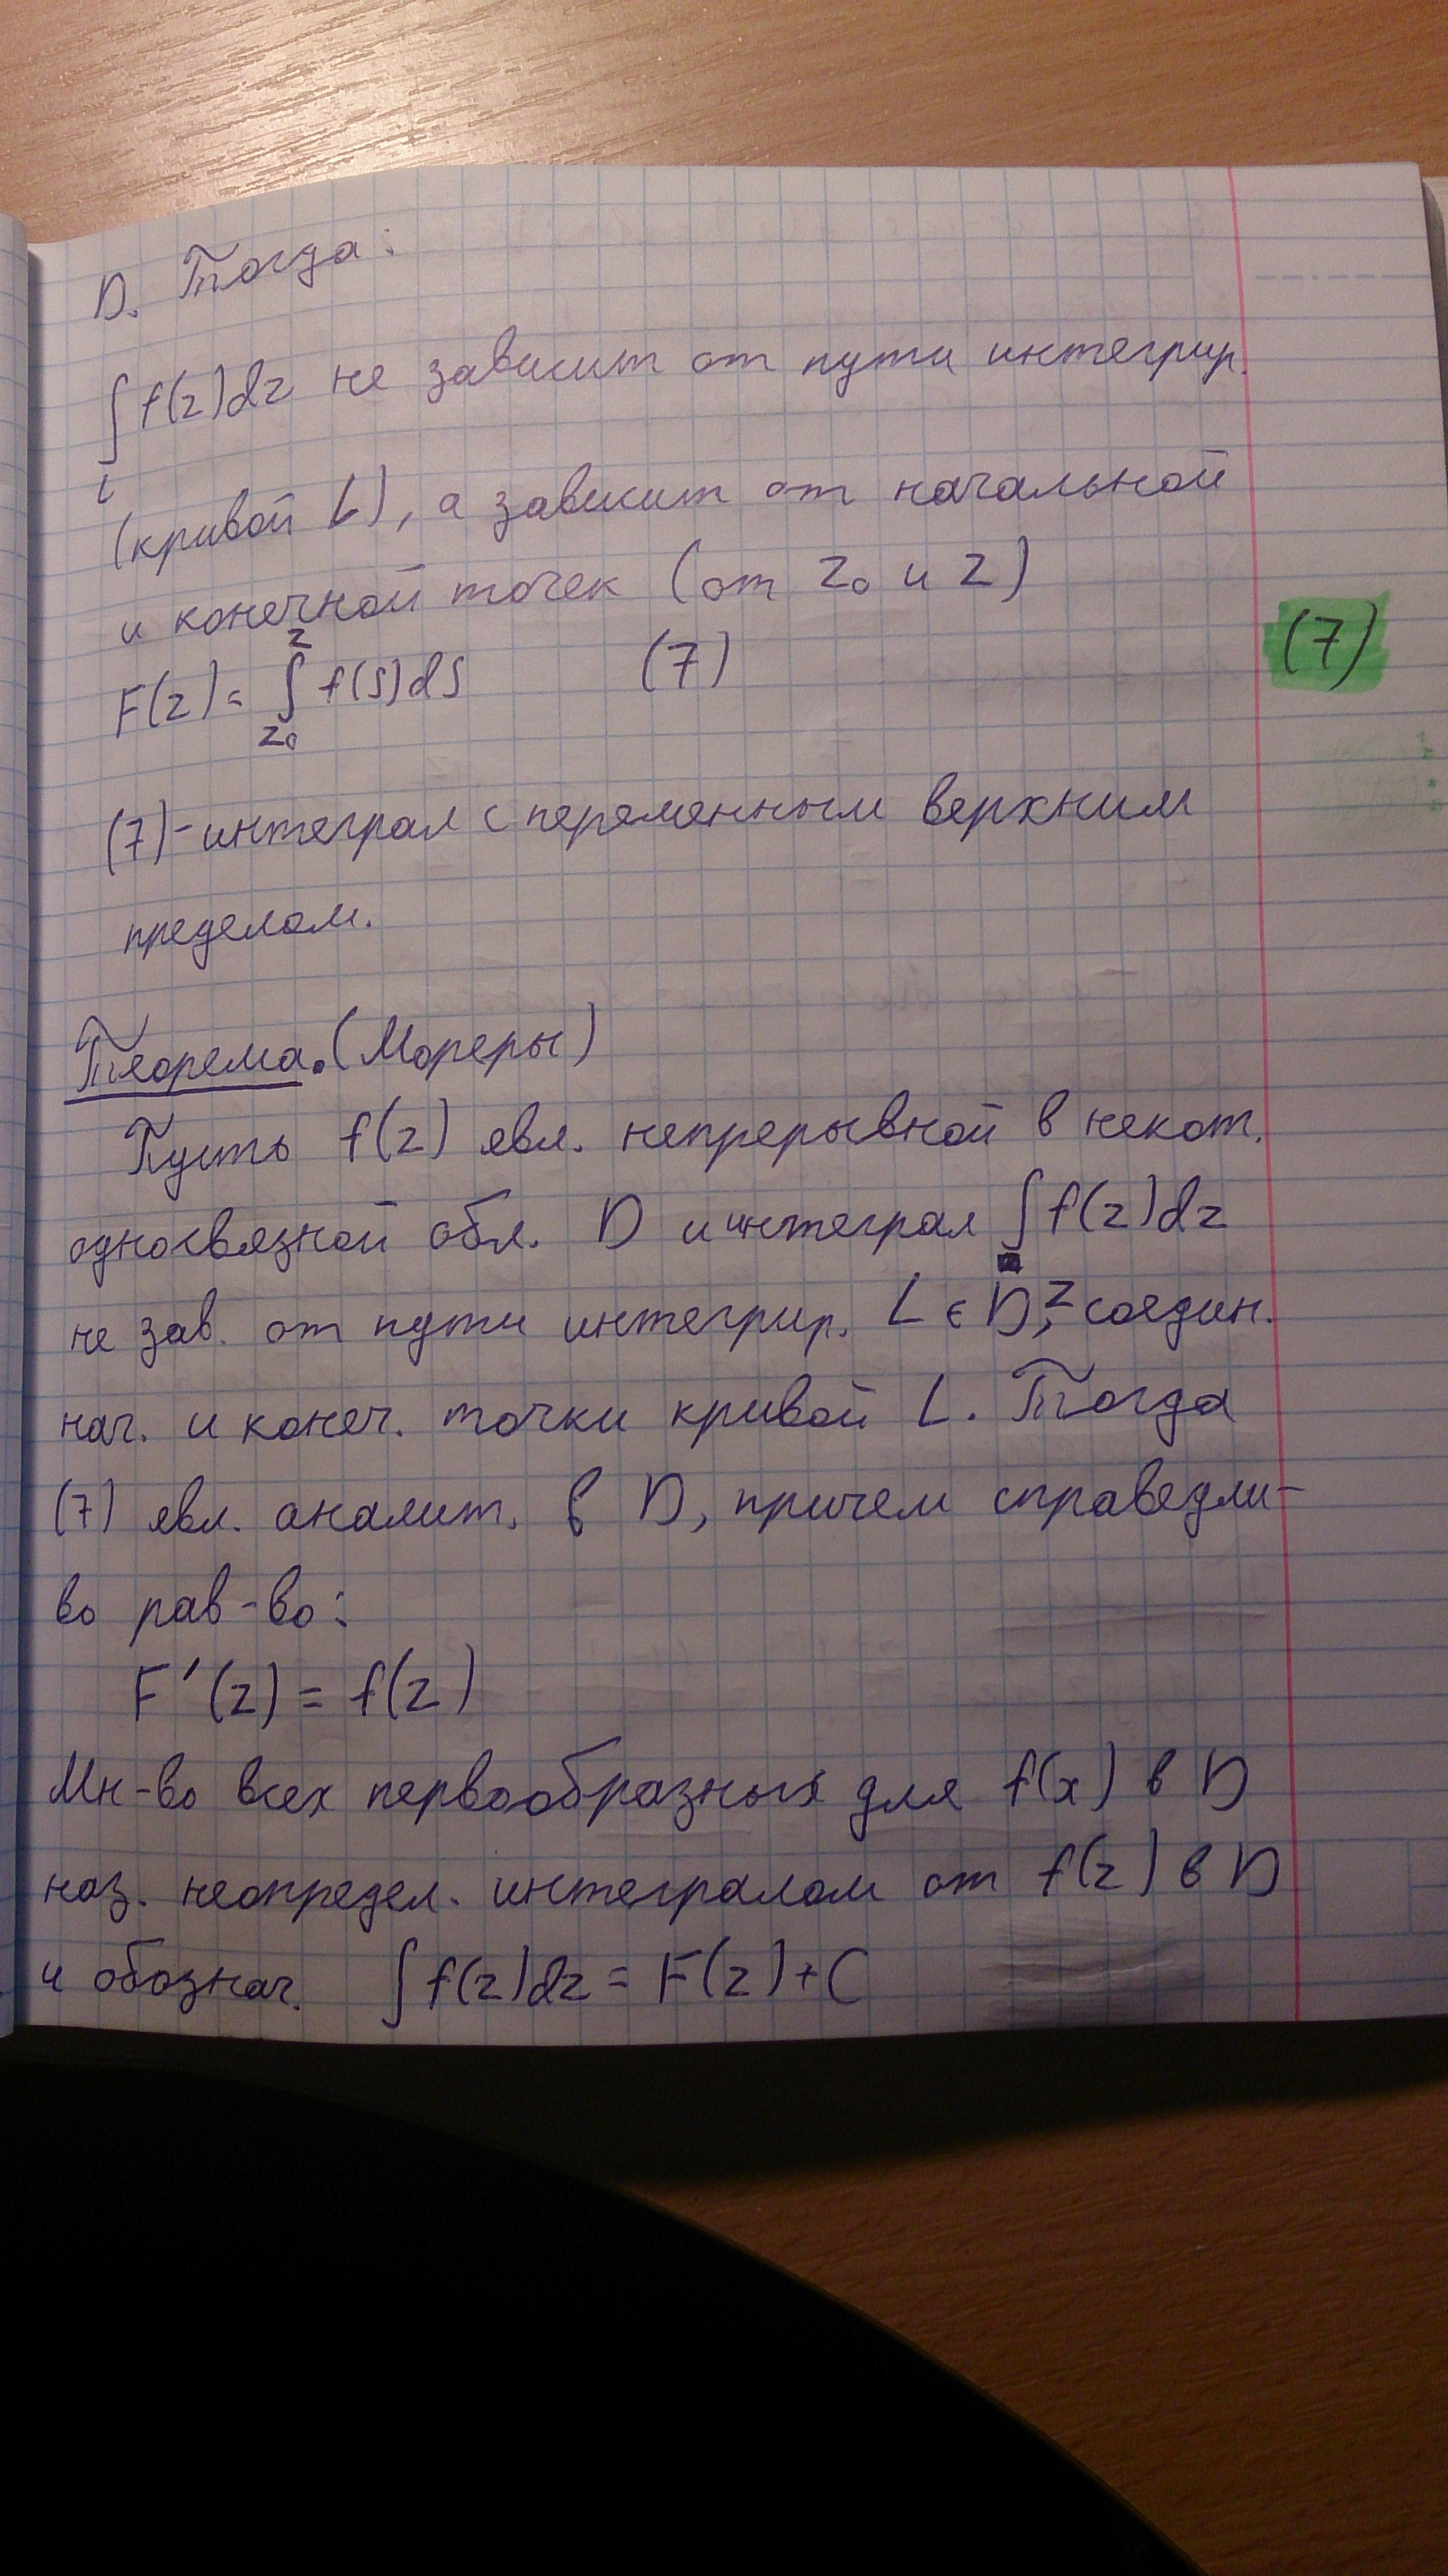 D. Тогда:
∫ f(z)dz не зависит от пути интегрир.
L
(кривой L), а зависит от начальной
и конечной точек (от z₀ и z)
z
F(z) = ∫ f(S)dS (7) (7)
z₀
(7)-интеграл с переменным верхним
пределом.
Теорема. (Мореры)
Пусть f(z) явл. непрерывной в некот.
односвязной обл. D и интеграл ∫ f(z)dz
не зав. от пути интегрир. L ∈ D, соедин.
нач. и конеч. точки кривой L. Тогда
(7) явл. аналит. в D, причем справедли-
во рав-во:
F'(z) = f(z)
Мн-во всех первообразных для f(x) в D
наз. неопредел. интегралом от f(z) в D
и обознач. ∫ f(z)dz = F(z)+C